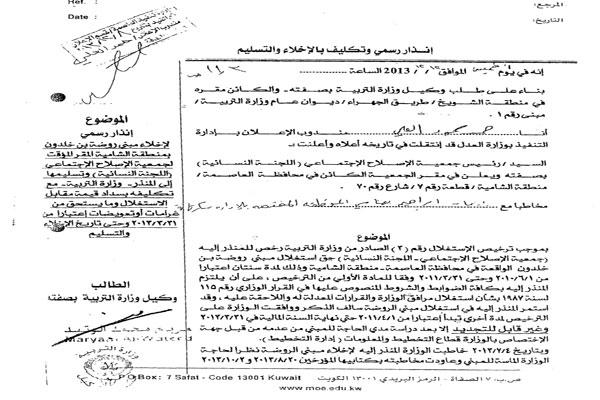 Ref:
المرجع:
Date :
التاريخ:
إنذار رسمي وتكليف بالإخلاء والتسليم
إنه في يوم الموافق ١٢/ 2013 الساعة
بناء على طلب وكيل وزارة التربية بصفته - والكائن مقره
في منطقة الشويخ / طريق الجهراء / ديوان عام وزارة التربية /
مبنى رقم ١
أنا مندوب الإعلان بإدارة
التنفيذ بوزارة العدل قد إنتقلت في تاريخه أعلاه وأعلنت :-
السيد / رئيس جمعية الإصلاح الإجتماعي (اللجنة النسائية)
بصفته ويعلن في مقر الجمعية الكائن في محافظة العاصمة -
منطقة الشامية / قطعة رقم ٧ / شارع رقم ٧٠
مخاطبا مع
الموضوع
إنذار رسمي
لإخلاء مبنى روضة بن خلدون
بمنطقة الشامية المقر المؤقت
لجمعية الإصلاح الإجتماعي
(اللجنة النسائية) وتسليمها
إلى المنذر - وزارة التربية - مع
تكليفه بسداد قيمة مقابل
الإستغلال وما يستحق من
غرامات أو تعويضات إعتبارا من
٢٠١٣/٣/٣١ وحتى تاريخ الإخلاء
والتسليم
الطالب
وكيل وزارة التربية بصفته
الموضوع
بموجب ترخيص الإستغلال رقم (٣) الصادر من وزارة التربية رخص للمنذر إليه
(جمعية الإصلاح الإجتماعي - اللجنة النسائية) حق إستغلال مبنى روضة بن
خلدون الواقعة في محافظة العاصمة - منطقة الشامية وذلك لمدة سنتان اعتبارا
من ٢٠١٠/٦/١ وحتى ٢٠١١/٣/٣١ وفقا للمادة الأولى من الترخيص ، على أن يلتزم
المنذر إليه بكافة الضوابط والشروط المنصوص عليها في القرار الوزاري رقم ١١٥
لسنة ١٩٨٧ بشأن إستغلال مرافق الوزارة والقرارات المعدلة له واللاحقة عليه ، وقد
إستمر المنذر إليه في إستغلال مبنى الروضة سالف الذكر ووافقت الوزارة على
الترخيص لمدة أخرى تبدأ إعتبارا من ٢٠١١/٤/١ حتى نهاية السنة المالية في ٢٠١٣/٣/٣١
وغير قابل للتجديد إلا بعد دراسة مدى الحاجة للمبنى من عدمه من قبل جهة
الإختصاص بالوزارة قطاع التخطيط والمعلومات (إدارة التخطيط).
وبتاريخ ٢٠١٣/٧/٤ خاطبت الوزارة المنذر إليه لإخلاء مبنى الروضة نظرا لحاجة
الوزارة الماسة للمبنى وعاودت مخاطبته بكتابيها المؤرخين ٢٠١٣/٨/٢٠ و ٢٠١٣/١٠/٢
P.O Box : 7 Safat - Code 13001 Kuwait
ص.ب : ٧ الصفاة - الرمز البريدي ١٣٠٠١ الكويت
www.moe.edu.kw